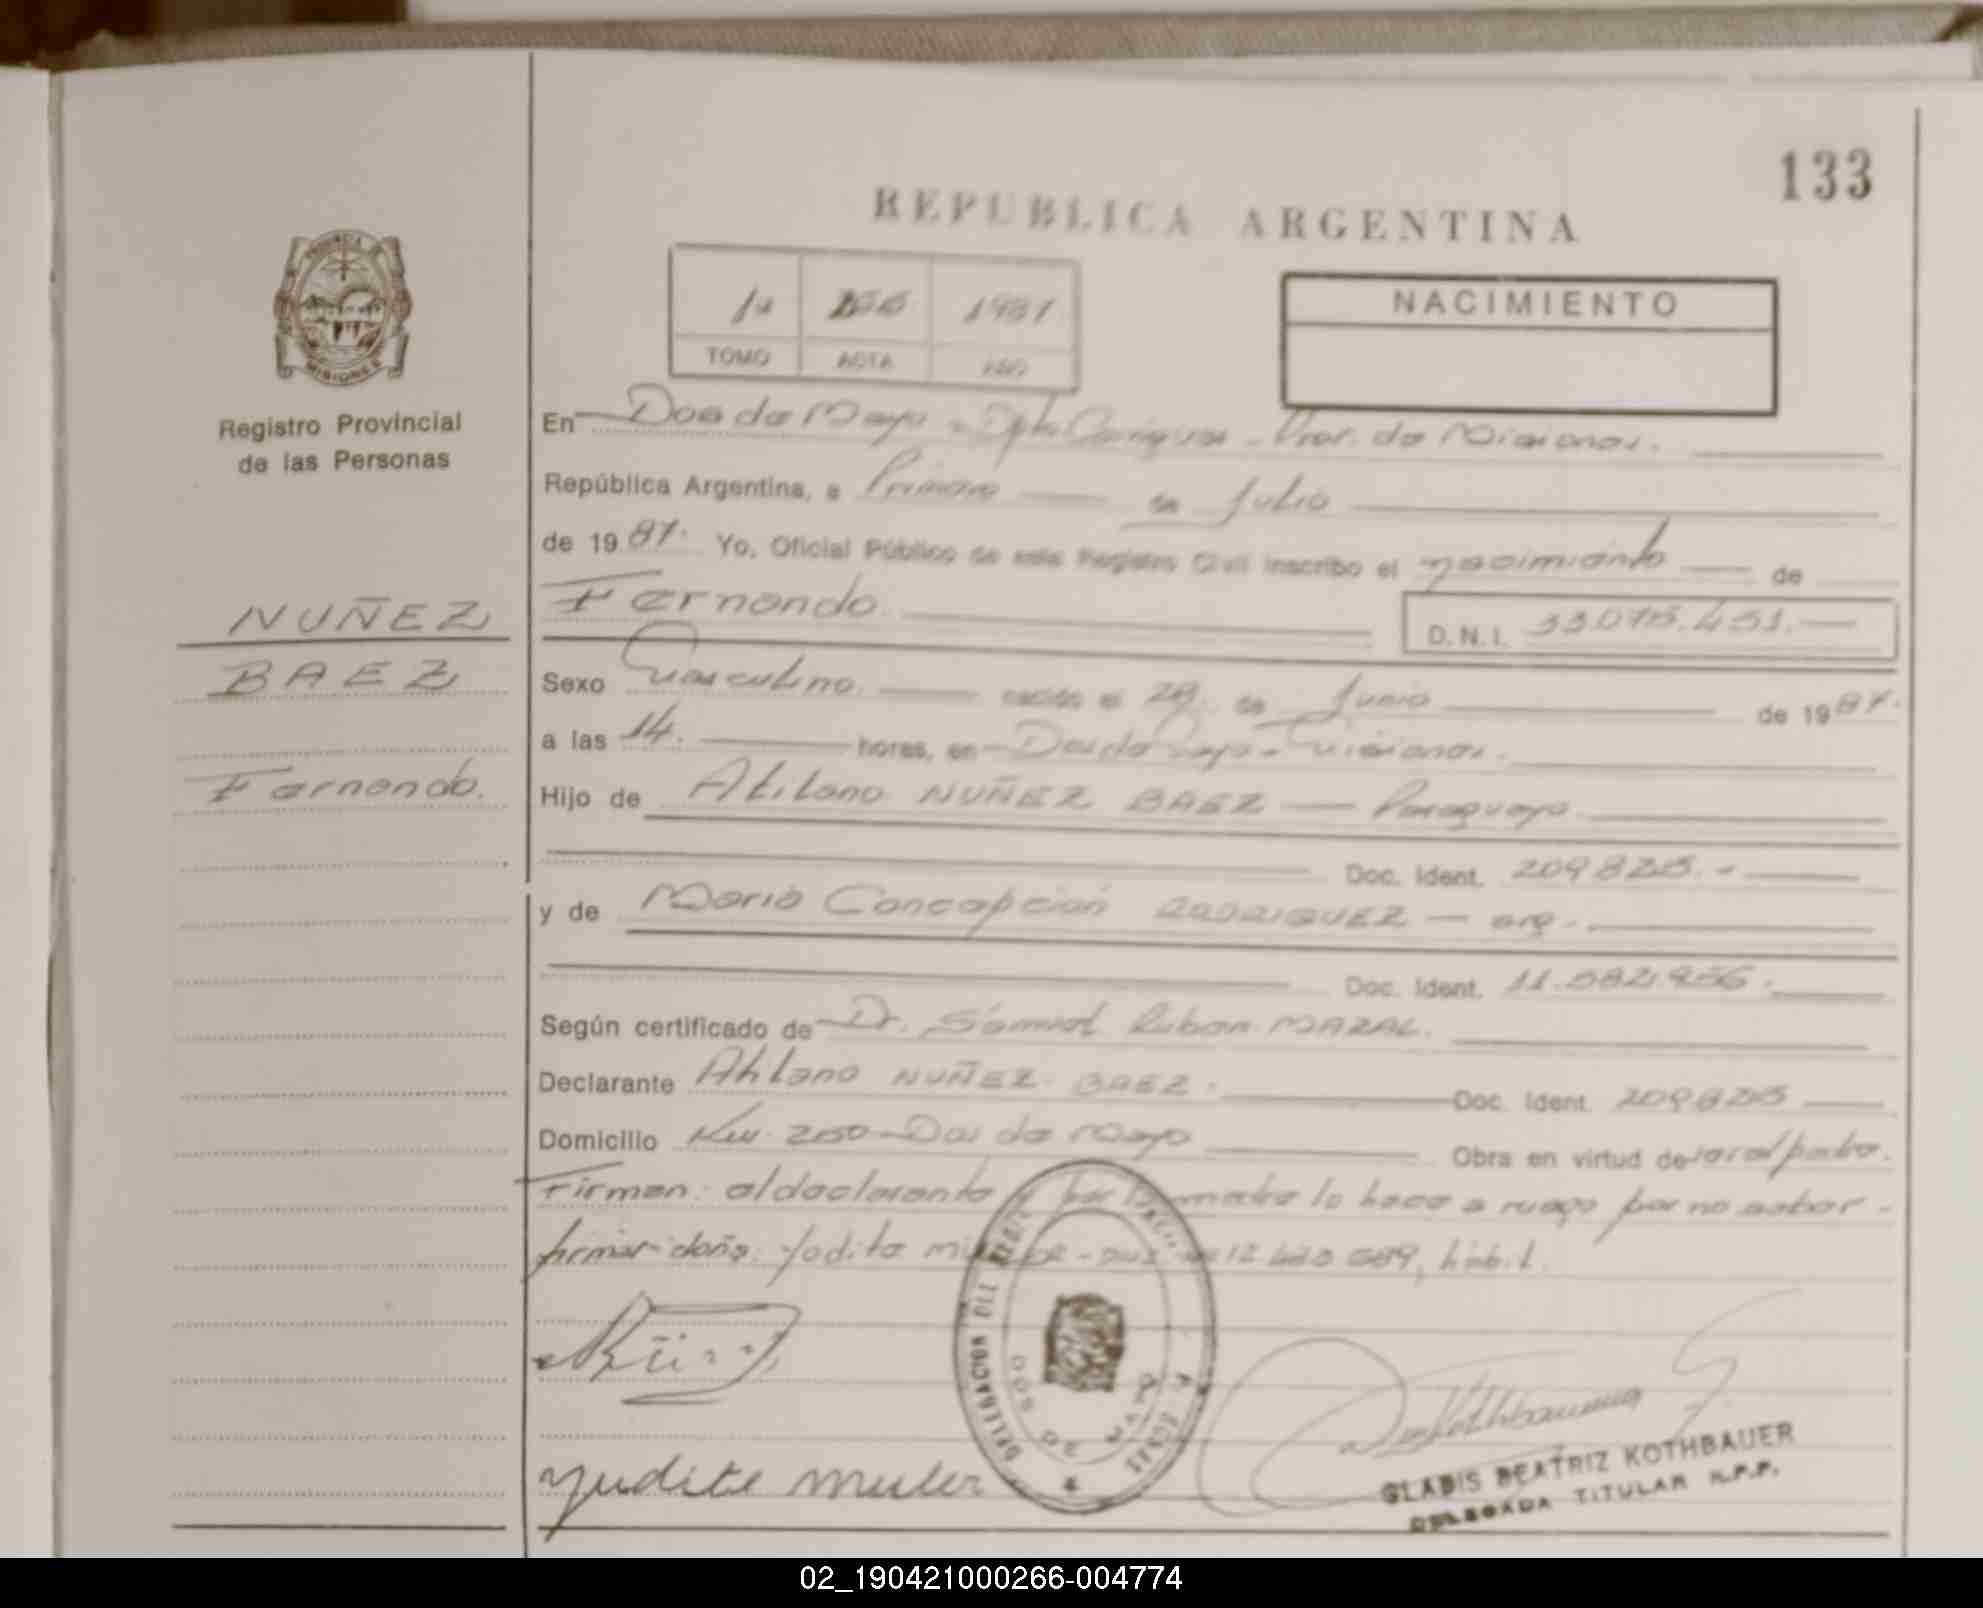 133
REPUBLICA ARGENTINA
NACIMIENTO
1º 1987
TOMO ACTA AÑO
PROVINCIA DE MISIONES
Registro Provincial
de las Personas
En Dos de Mayo - Dpto Cainguas - Prov. de Misiones.
República Argentina, a Primero de Julio
de 1987. Yo, Oficial Público de este Registro Civil inscribo el nacimiento de
NUÑEZ
BAEZ
Fernando.
Fernando.
D.N.I. 33.075.451.
Sexo Masculino. nacido el 28 de Junio de 1987.
a las 14. horas, en Dos de Mayo - Misiones.
Hijo de Atilano NUÑEZ BAEZ — Paraguayo.
Doc. Ident.
y de Maria Concepción RODRIGUEZ — arg.
Doc. Ident. 11.582.956.
Según certificado de Dr. Samuel Ruben MAZAL.
Declarante Atilano NUÑEZ BAEZ. Doc. Ident.
Domicilio Km. 250 - Dos de Mayo Obra en virtud de
Firman: el declarante y por la madre lo hace a ruego por no saber -
firmar doña: Yudite hábil.
DELEGACION DEL REGIST
DOS DE MAYO
yudite muler
GLADIS BEATRIZ KOTHBAUER
DELEGADA TITULAR R.P.P.
02_190421000266-004774